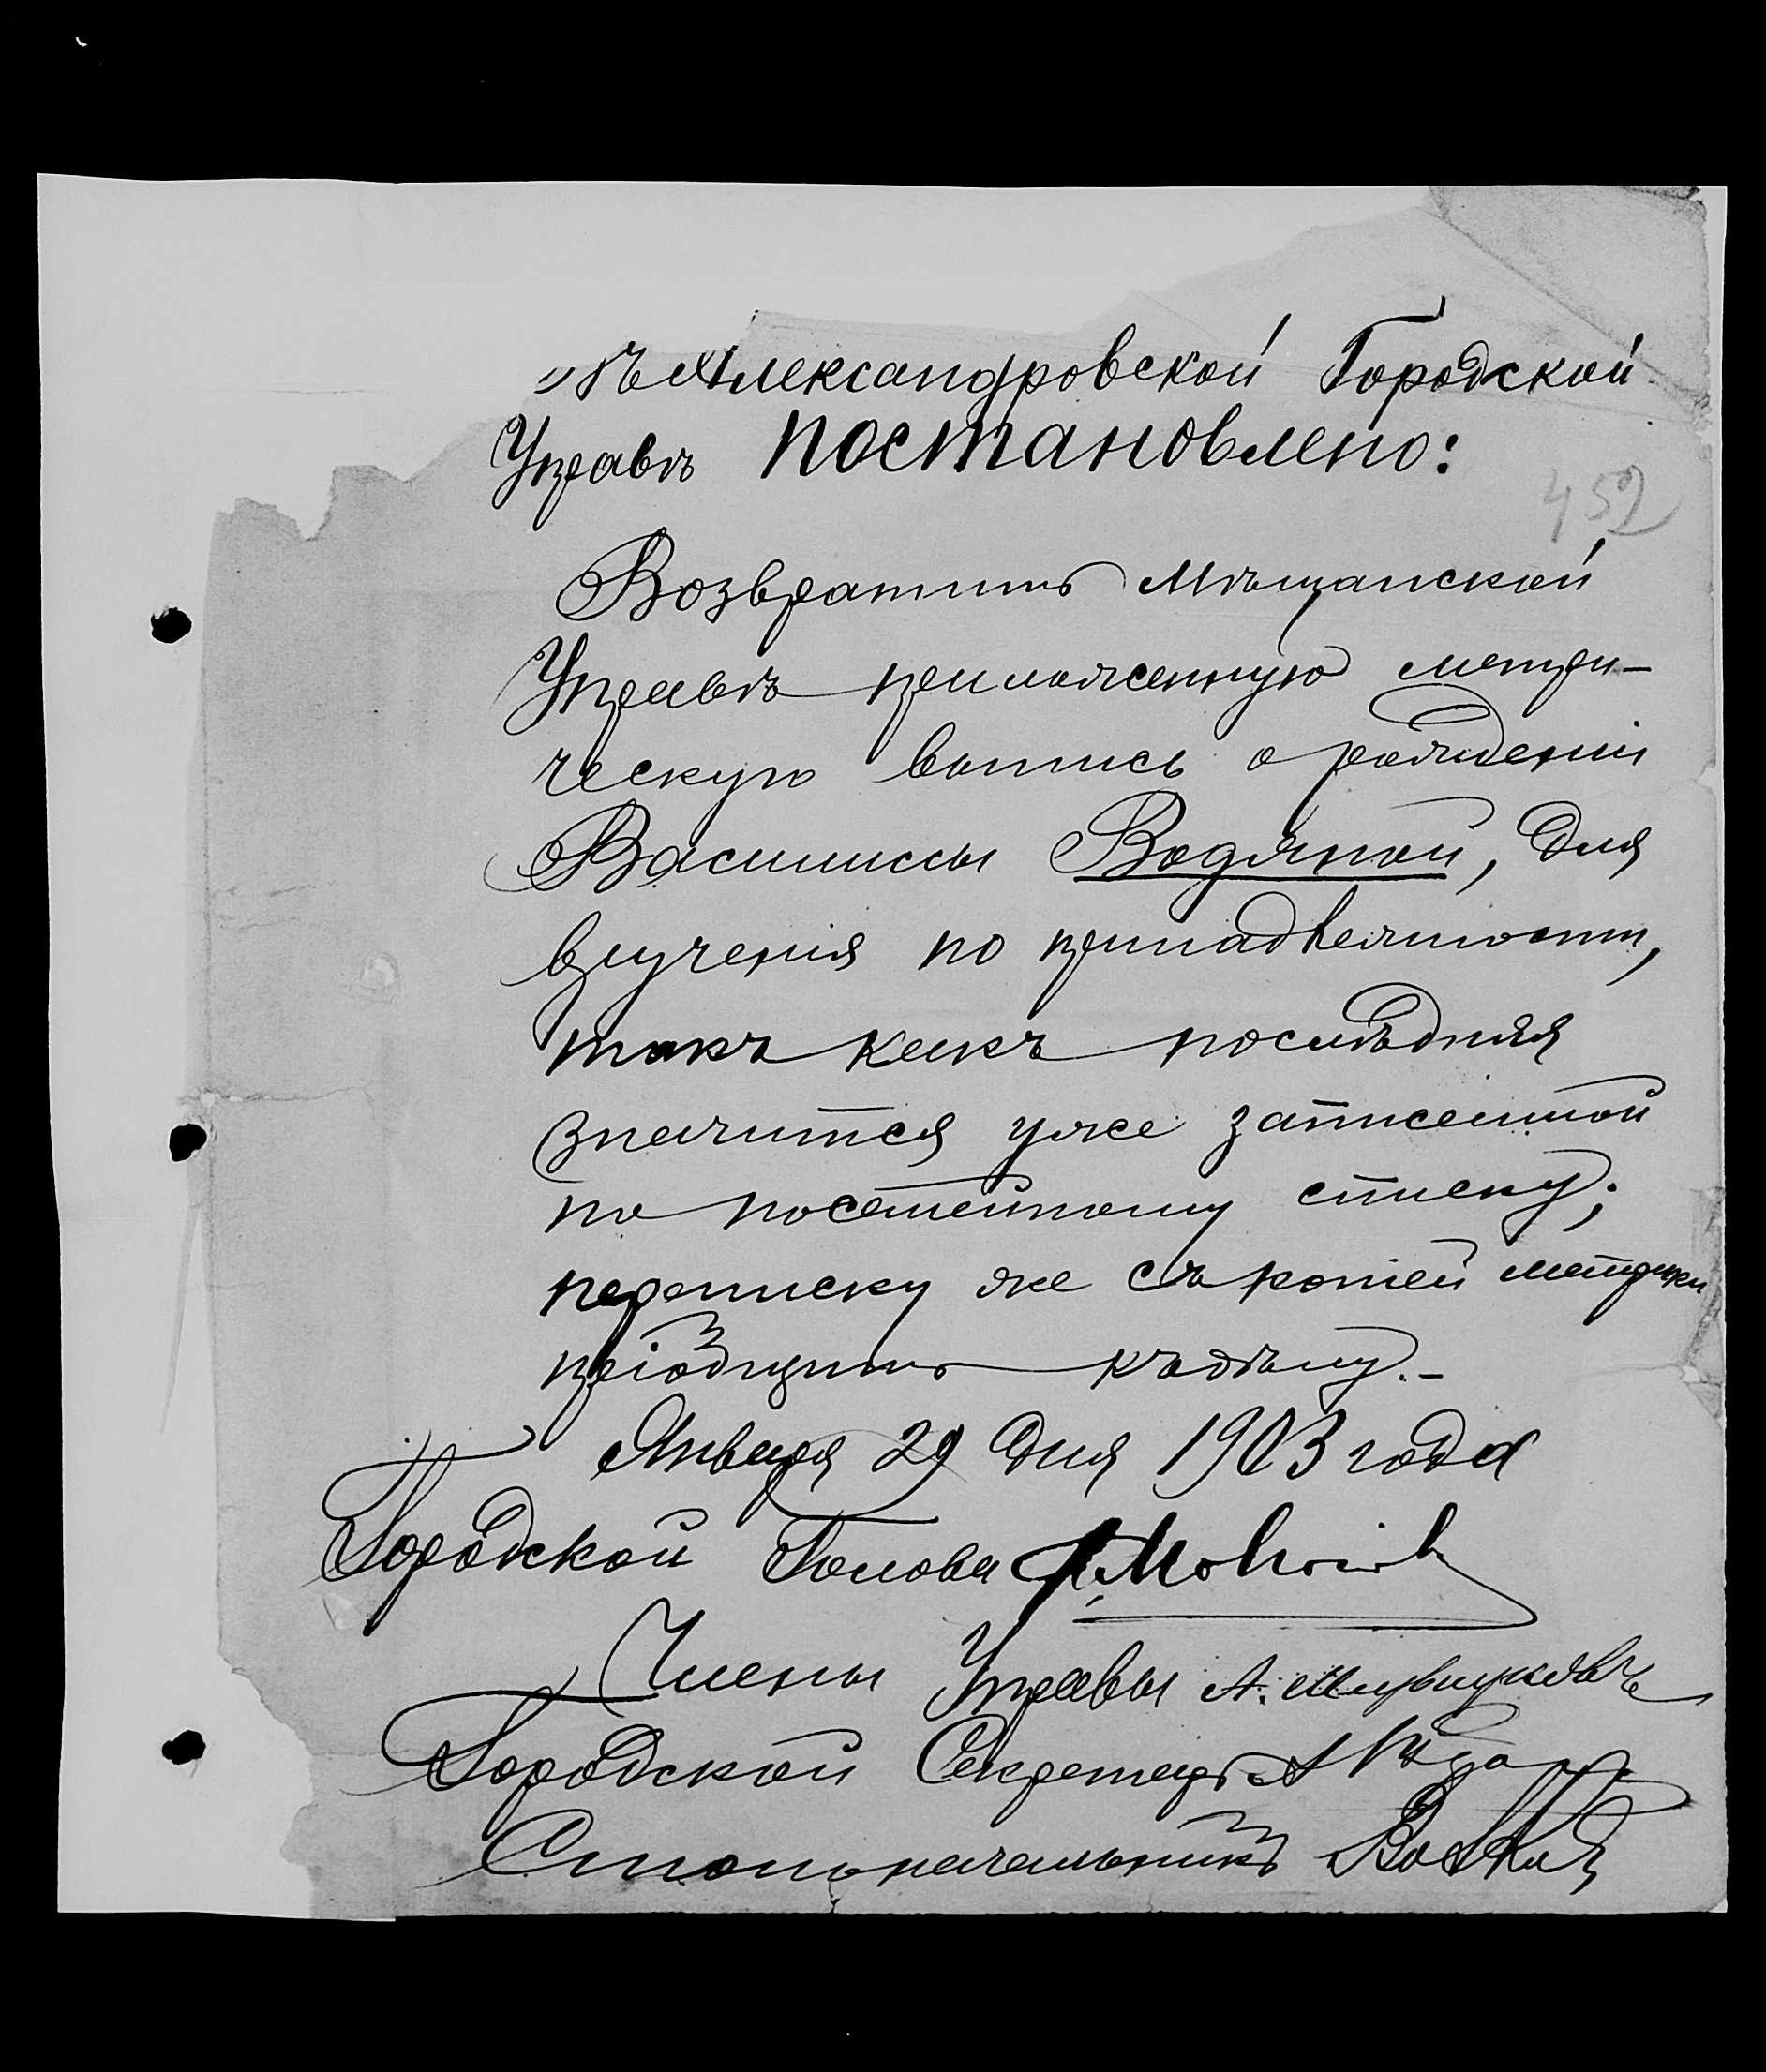 Въ Александровской Городской
Управѣ постановлено:
452
Возвратить Мѣщанской
Управѣ приложенную метри-
ческую выпись о рожденіи
Василиссы Водяной, для
врученія по принадлежности,
такъ какъ послѣдняя
значится уже записанной
по посемейному списку;
переписку же съ копіей метрики
пріобщить къ дѣлу.-
Января 29 дня 1903 года
Городской Голова
Члены Управы А.
Городской Секретарь
Столоначальникъ